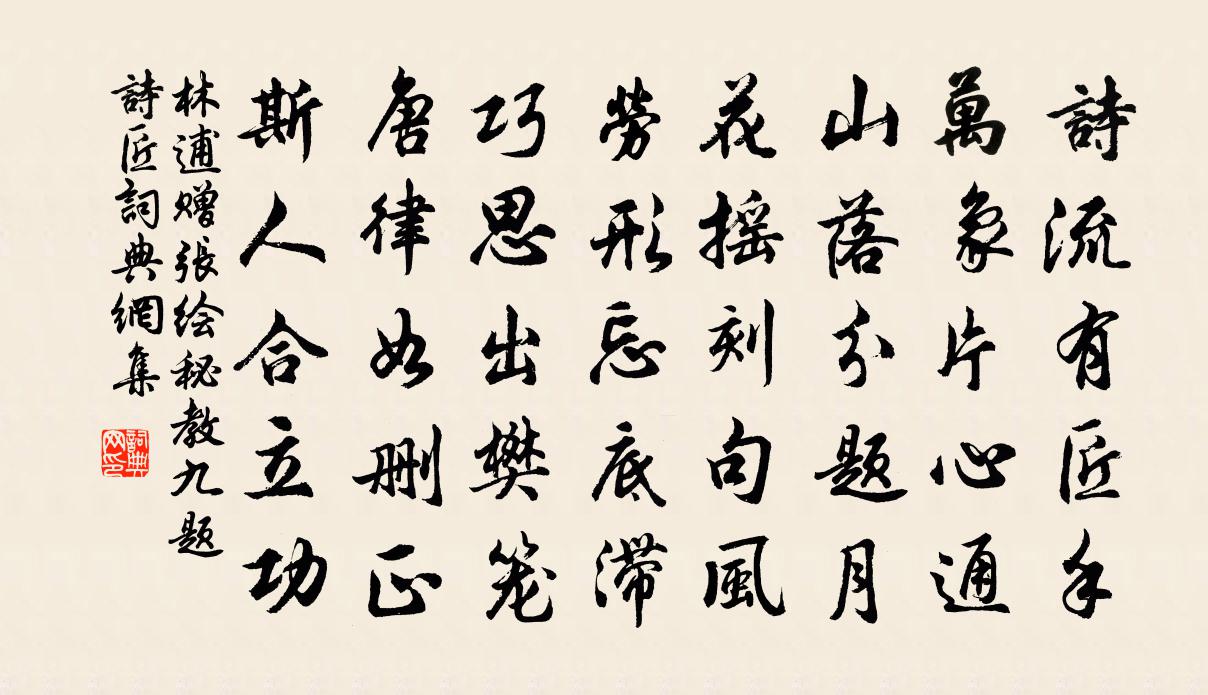 詩流有匠手
萬象片心通
山落分題月
花摇刻句風
勞形忘底滞
巧思出樊笼
唐律如删正
斯人合立功
林逋赠張绘秘教九题
詩匠詞典網集
詞典
网印